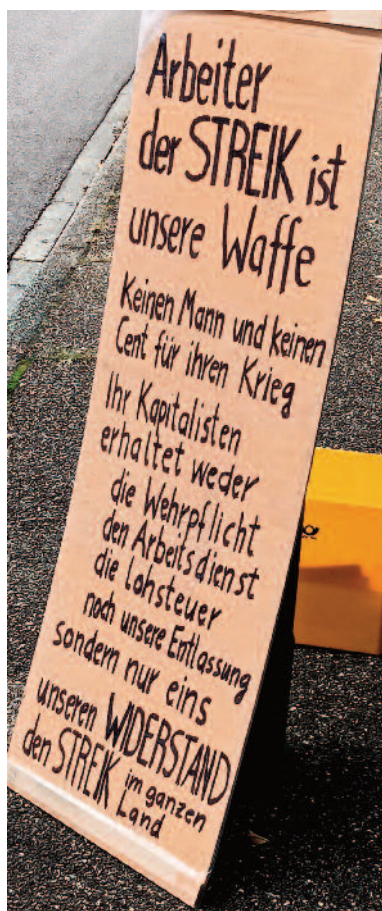 Arbeiter
der STREIK ist
unsere Waffe
Keinen Mann und keinen
Cent für ihren Krieg
Ihr Kapitalisten
erhaltet weder
die Wehrpflicht
den Arbeitsdienst
die Lohsteuer
noch unsere Entlassung
sondern nur eins
unseren WIDERSTAND
den STREIK im ganzen
Land